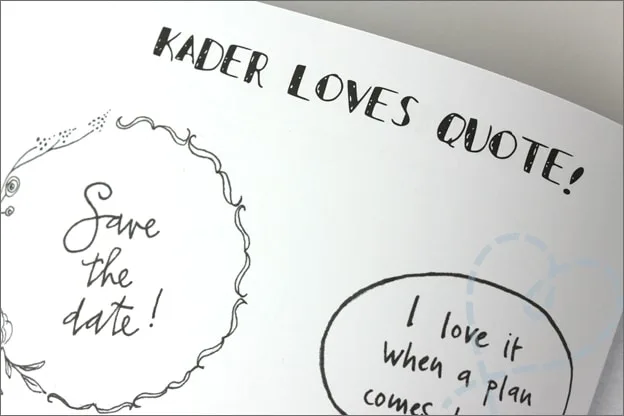 KADER LOVES QUOTE!
Save
the
date!
I love it
when a plan
comes